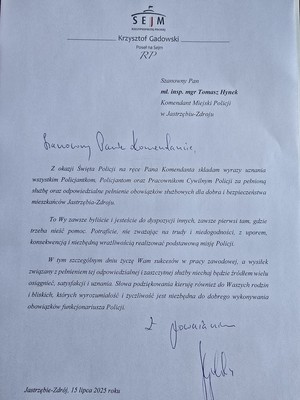 SEJM
RZECZYPOSPOLITEJ POLSKIEJ
Krzysztof Gadowski
Poseł na Sejm
RP
Szanowny Pan
mł. insp. mgr Tomasz Hynek
Komendant Miejski Policji
w Jastrzębiu-Zdroju
Szanowny Panie Komendancie,
Z okazji Święta Policji na ręce Pana Komendanta składam wyrazy uznania
wszystkim Policjantkom, Policjantom oraz Pracownikom Cywilnym Policji za pełnioną
służbę oraz odpowiedzialne pełnienie obowiązków służbowych dla dobra i bezpieczeństwa
mieszkańców Jastrzębia-Zdroju.
To Wy zawsze byliście i jesteście do dyspozycji innych, zawsze pierwsi tam, gdzie
trzeba nieść pomoc. Potraficie, nie zważając na trudy i niedogodności, z uporem,
konsekwencją i niezbędną wrażliwością realizować podstawową misję Policji.
W tym szczególnym dniu życzę Wam sukcesów w pracy zawodowej, a wysiłek
związany z pełnieniem tej odpowiedzialnej i zaszczytnej służby niechaj będzie źródłem wielu
osiągnięć, satysfakcji i uznania. Słowa podziękowania kieruję również do Waszych rodzin
i bliskich, których wyrozumiałość i życzliwość jest niezbędna do dobrego wykonywania
obowiązków funkcjonariusza Policji.
Z poważaniem
Jastrzębie-Zdrój, 15 lipca 2025 roku